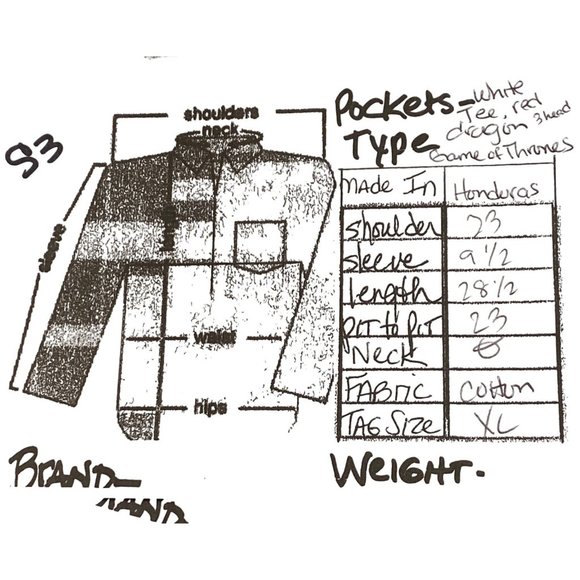 S3
shoulders
neck
sleeve
waist
hips
BRAND
RAND
Pockets- White
Tee, red
dragon 3 head
Type Game of Thrones
MADE In Honduras
shoulder 23
sleeve 9 1/2
Length 28 1/2
PIT to PIT 23
Neck
FABRIC Cotton
TAG SIZE XL
WEIGHT-